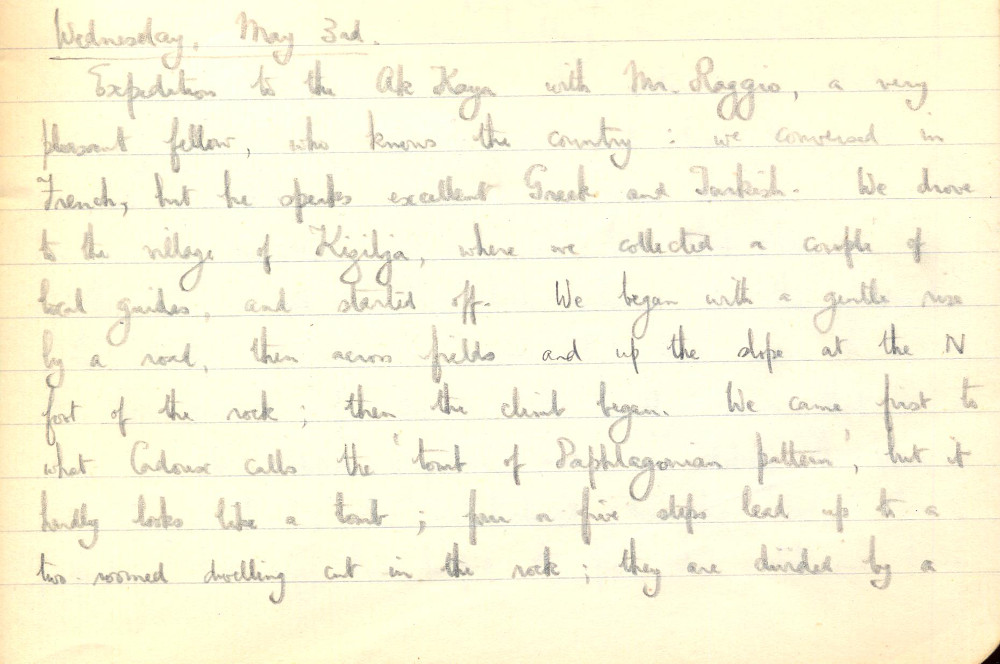 Wednesday, May 3rd.
Expedition to the Ak Kaya with Mr. Raggio, a very
pleasant fellow, who knows the country : we conversed in
French, but he speaks excellent Greek and Turkish. We drove
to the village of Kizilja, where we collected a couple of
local guides, and started off. We began with a gentle rise
by a road, then across fields and up the slope at the N
foot of the rock ; then the climb began. We came first to
what Cadoux calls the 'tomb of Paphlagonian pattern', but it
hardly looks like a tomb ; four or five steps lead up to a
two-roomed dwelling cut in the rock ; they are divided by a